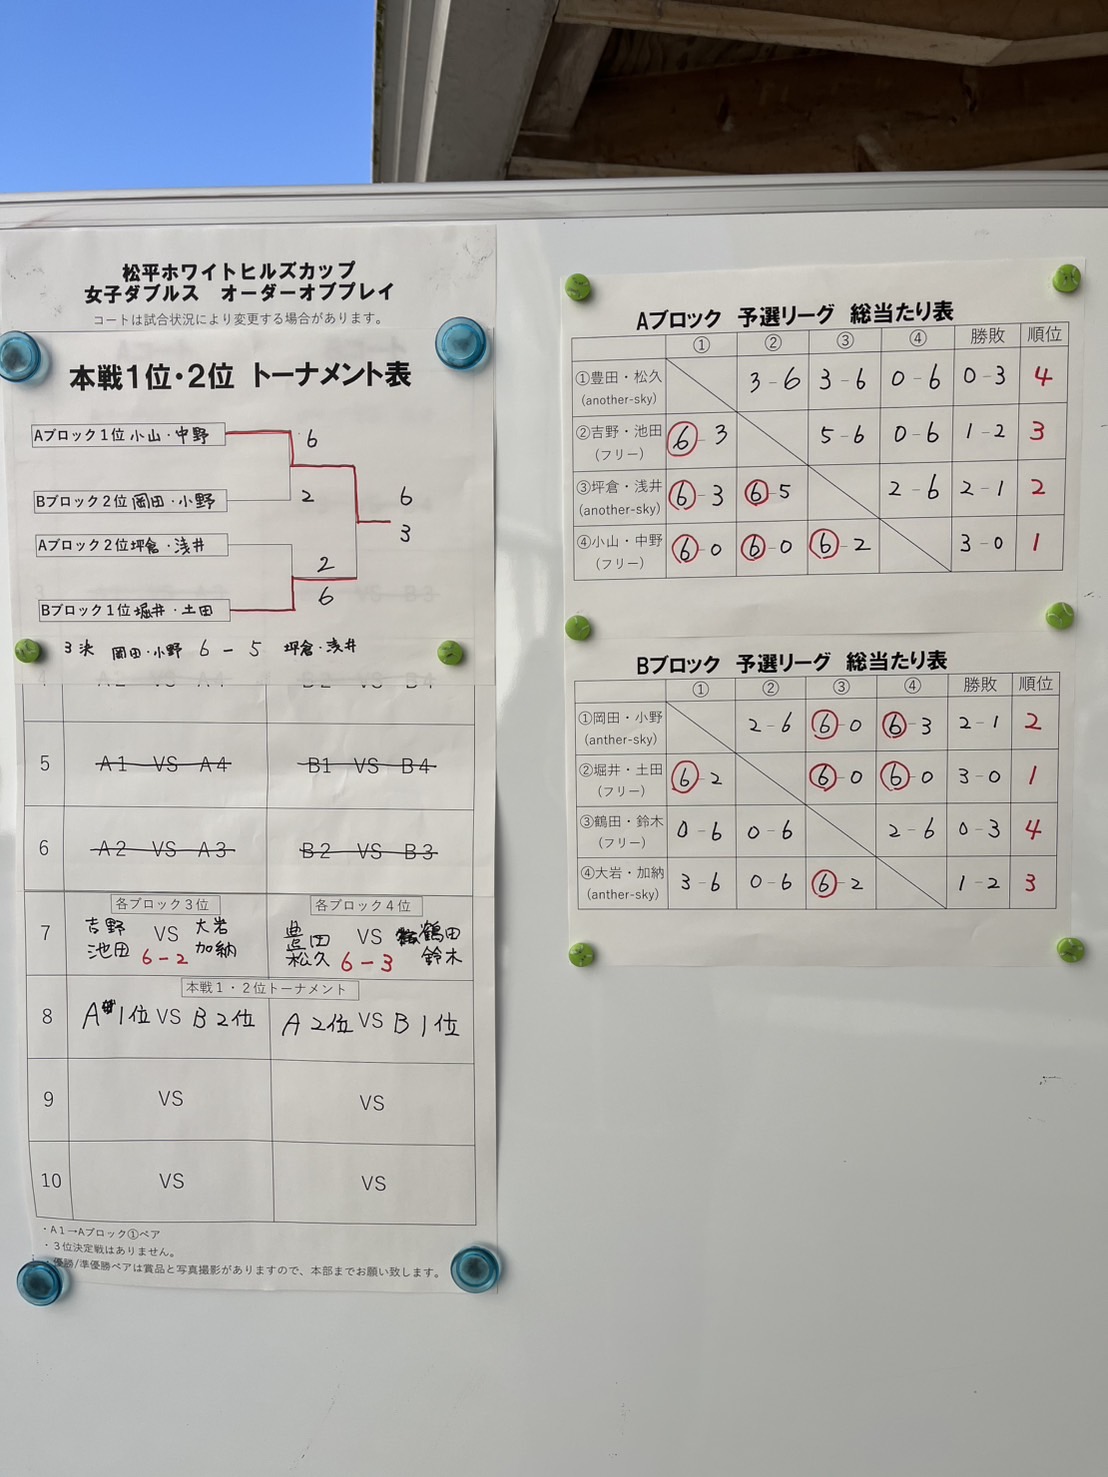 松平ホワイトヒルズカップ
女子ダブルス オーダーオブプレイ
コートは試合状況により変更する場合があります。
本戦1位・2位 トーナメント表
Aブロック1位 小山・中野
6
Bブロック2位 岡田・小野
2
6
3
Aブロック2位 坪倉・浅井
2
Bブロック1位 堀井・土田
6
3決 岡田・小野 6 - 5 坪倉・浅井
4 A2 VS A4 B2 VS B4
5 A1 VS A4 B1 VS B4
6 A2 VS A3 B2 VS B3
各ブロック3位 各ブロック4位
7 吉野 池田 VS 大岩 加納 6-2 豊田 松久 VS 鶴田 鈴木 6-3
本戦1・2位トーナメント
8 A1位 VS B2位 A2位 VS B1位
9 VS VS
10 VS VS
・A1→Aブロック①ペア
・3位決定戦はありません。
・優勝/準優勝ペアは賞品と写真撮影がありますので、本部までお願い致します。
Aブロック 予選リーグ 総当たり表
① ② ③ ④ 勝敗 順位
①豊田・松久 (another-sky) 3-6 3-6 0-6 0-3 4
②吉野・池田 (フリー) 6-3 5-6 0-6 1-2 3
③坪倉・浅井 (another-sky) 6-3 6-5 2-6 2-1 2
④小山・中野 (フリー) 6-0 6-0 6-2 3-0 1
Bブロック 予選リーグ 総当たり表
① ② ③ ④ 勝敗 順位
①岡田・小野 (anther-sky) 2-6 6-0 6-3 2-1 2
②堀井・土田 (フリー) 6-2 6-0 6-0 3-0 1
③鶴田・鈴木 (フリー) 0-6 0-6 2-6 0-3 4
④大岩・加納 (anther-sky) 3-6 0-6 6-2 1-2 3